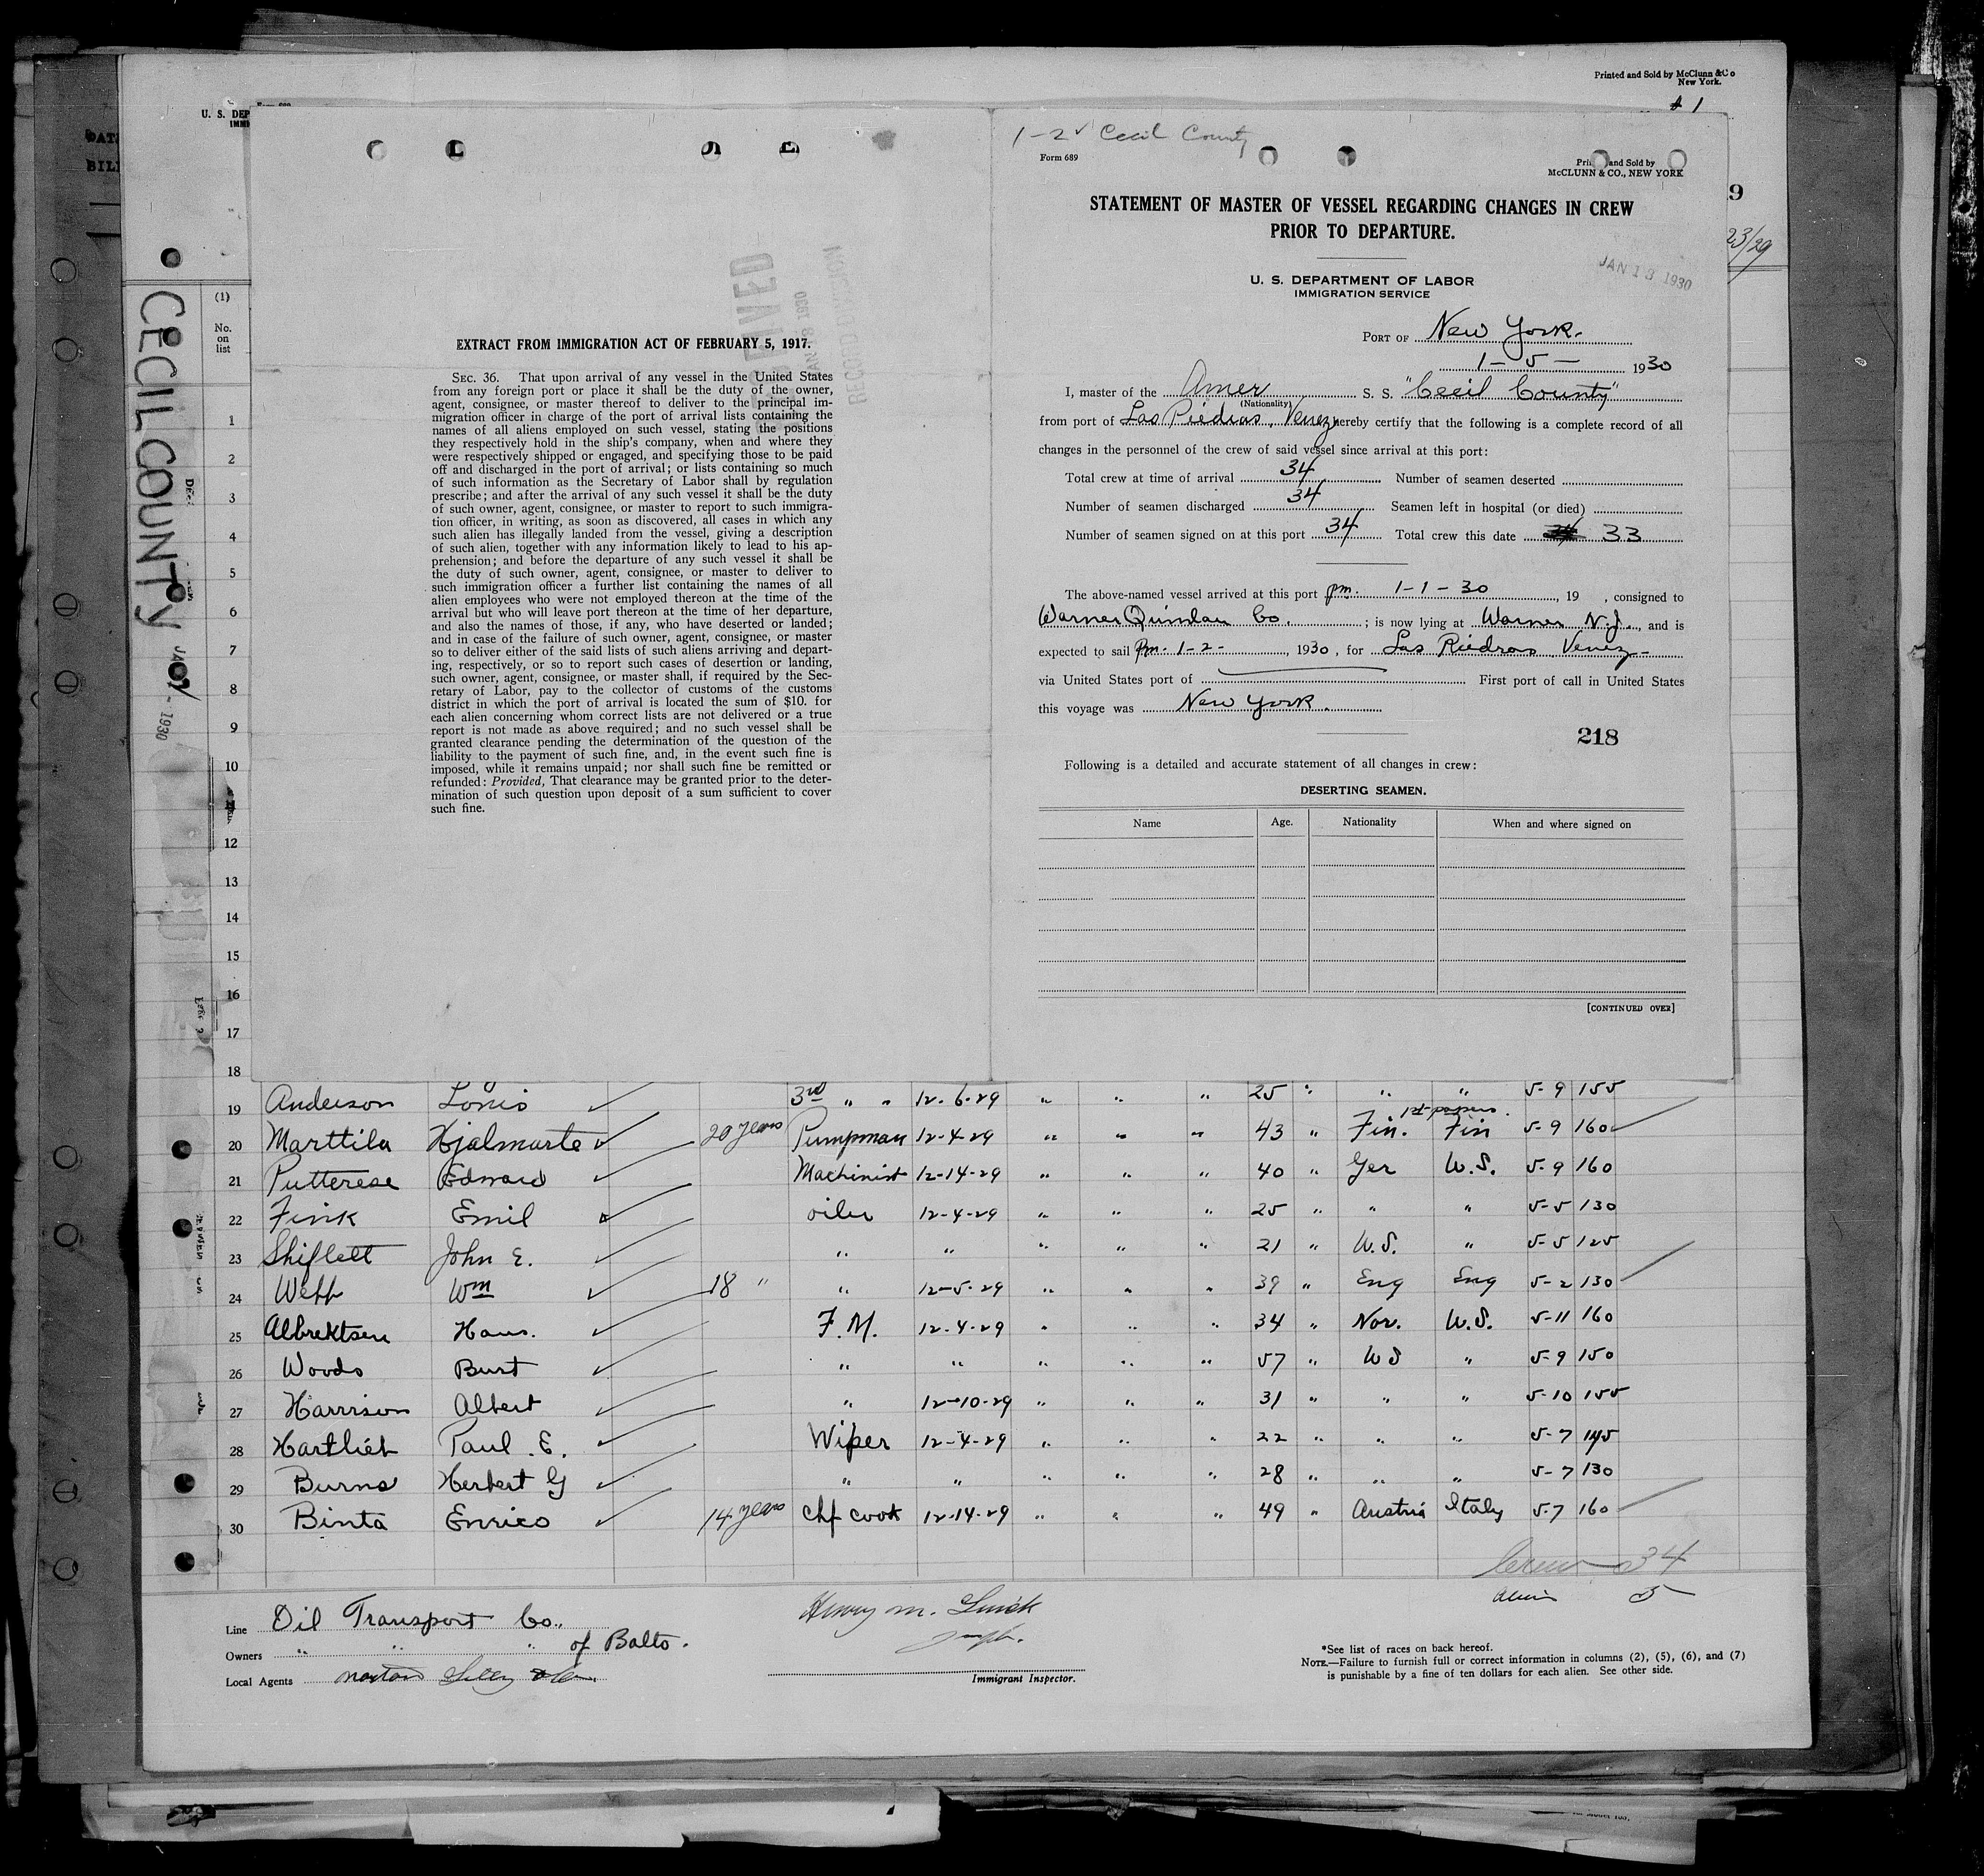 Printed and Sold by McClunn & Co
New York.
1
U. S. DEP
IMMI
CECIL COUNTY
(1)
No.
on
list
EXTRACT FROM IMMIGRATION ACT OF FEBRUARY 5, 1917.
SEC. 36. That upon arrival of any vessel in the United States
from any foreign port or place it shall be the duty of the owner,
agent, consignee, or master thereof to deliver to the principal im-
migration officer in charge of the port of arrival lists containing the
names of all aliens employed on such vessel, stating the positions
they respectively hold in the ship's company, when and where they
were respectively shipped or engaged, and specifying those to be paid
off and discharged in the port of arrival; or lists containing so much
of such information as the Secretary of Labor shall by regulation
prescribe; and after the arrival of any such vessel it shall be the duty
of such owner, agent, consignee, or master to report to such immigra-
tion officer, in writing, as soon as discovered, all cases in which any
such alien has illegally landed from the vessel, giving a description
of such alien, together with any information likely to lead to his ap-
prehension; and before the departure of any such vessel it shall be
the duty of such owner, agent, consignee, or master to deliver to
such immigration officer a further list containing the names of all
alien employees who were not employed thereon at the time of the
arrival but who will leave port thereon at the time of her departure,
and also the names of those, if any, who have deserted or landed;
and in case of the failure of such owner, agent, consignee, or master
so to deliver either of the said lists of such aliens arriving and depart-
ing, respectively, or so to report such cases of desertion or landing,
such owner, agent, consignee, or master shall, if required by the Sec-
retary of Labor, pay to the collector of customs of the customs
district in which the port of arrival is located the sum of $10. for
each alien concerning whom correct lists are not delivered or a true
report is not made as above required; and no such vessel shall be
granted clearance pending the determination of the question of the
liability to the payment of such fine, and, in the event such fine is
imposed, while it remains unpaid; nor shall such fine be remitted or
refunded: Provided, That clearance may be granted prior to the deter-
mination of such question upon deposit of a sum sufficient to cover
such fine.
1-2 Cecil County
Form 689
Printed and Sold by
McCLUNN & CO., NEW YORK
STATEMENT OF MASTER OF VESSEL REGARDING CHANGES IN CREW
PRIOR TO DEPARTURE.
U. S. DEPARTMENT OF LABOR
IMMIGRATION SERVICE
JAN 13 1930
23/29
PORT OF New York.
1-5- 1930
I, master of the Amer S. S. "Cecil County"
(Nationality)
from port of Las Piedras, Venez hereby certify that the following is a complete record of all
changes in the personnel of the crew of said vessel since arrival at this port:
Total crew at time of arrival 34 Number of seamen deserted
Number of seamen discharged 34 Seamen left in hospital (or died)
Number of seamen signed on at this port 34 Total crew this date 33
The above-named vessel arrived at this port pm. 1-1-30, 19 , consigned to
Warner Quinlan Co. ; is now lying at Warner N.J., and is
expected to sail Pm. 1-2-, 1930, for Las Piedras Venez-
via United States port of First port of call in United States
this voyage was New York.
218
Following is a detailed and accurate statement of all changes in crew:
DESERTING SEAMEN.
Name Age. Nationality When and where signed on
[CONTINUED OVER]
1
2
3
4
5
6
7
8
9
10
11
12
13
14
15
16
17
18
19 Anderson Louis 3rd " " 12-6-29 " " " 25 " " " 5-9 155
1st papers.
20 Marttila Hjalmarte 20 years Pumpman 12-4-29 " " " 43 " Fin. Fin 5-9 160
21 Putterese Edward Machinist 12-14-29 " " " 40 " Ger U.S. 5-9 160
22 Fink Emil oiler 12-4-29 " " " 25 " " " 5-5 130
23 Shiflett John E. " " " " " 21 " U.S. " 5-5 125
24 Webb Wm 18 " " 12-5-29 " " " 39 " Eng Eng 5-2 130
25 Albrektsen Hans. F.M. 12-4-29 " " " 34 " Nor. U.S. 5-11 160
26 Woods Burt " " " " " 57 " US " 5-9 150
27 Harrison Albert " 12-10-29 " " " 31 " " " 5-10 155
28 Hartlieb Paul E. Wiper 12-4-29 " " " 22 " " " 5-7 145
29 Burns Herbert G " " " " " 28 " " " 5-7 130
30 Binta Enrico 14 years chf cook 12-14-29 " " " 49 " Austria Italy 5-7 160
Crew 34
Alien 5
Line Oil Transport Co.
Owners " " " of Balto.
Local Agents Norton Lilly & Co.
Henry M.
Immigrant Inspector.
*See list of races on back hereof.
NOTE.—Failure to furnish full or correct information in columns (2), (5), (6), and (7)
is punishable by a fine of ten dollars for each alien. See other side.